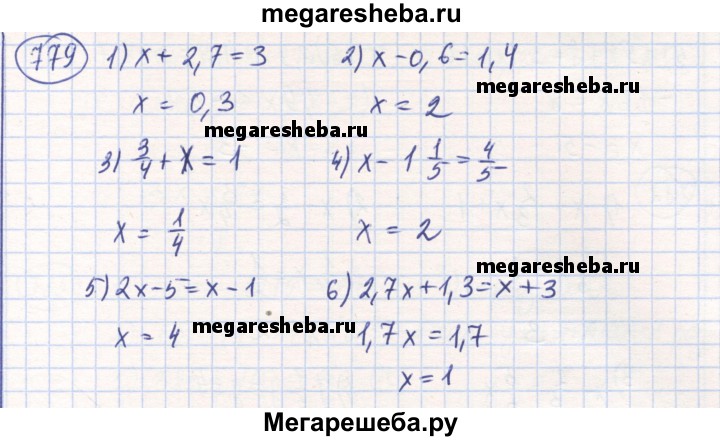 megaresheba.ru
779 1) x + 2,7 = 3 2) x - 0,6 = 1,4
x = 0,3 x = 2
megaresheba.ru megaresheba.ru
3) 3/4 + x = 1 4) x - 1 1/5 = 4/5
x = 1/4 x = 2
megaresheba.ru
5) 2x - 5 = x - 1 6) 2,7x + 1,3 = x + 3
x = 4 megaresheba.ru 1,7x = 1,7
x = 1
Мегарешеба.ру